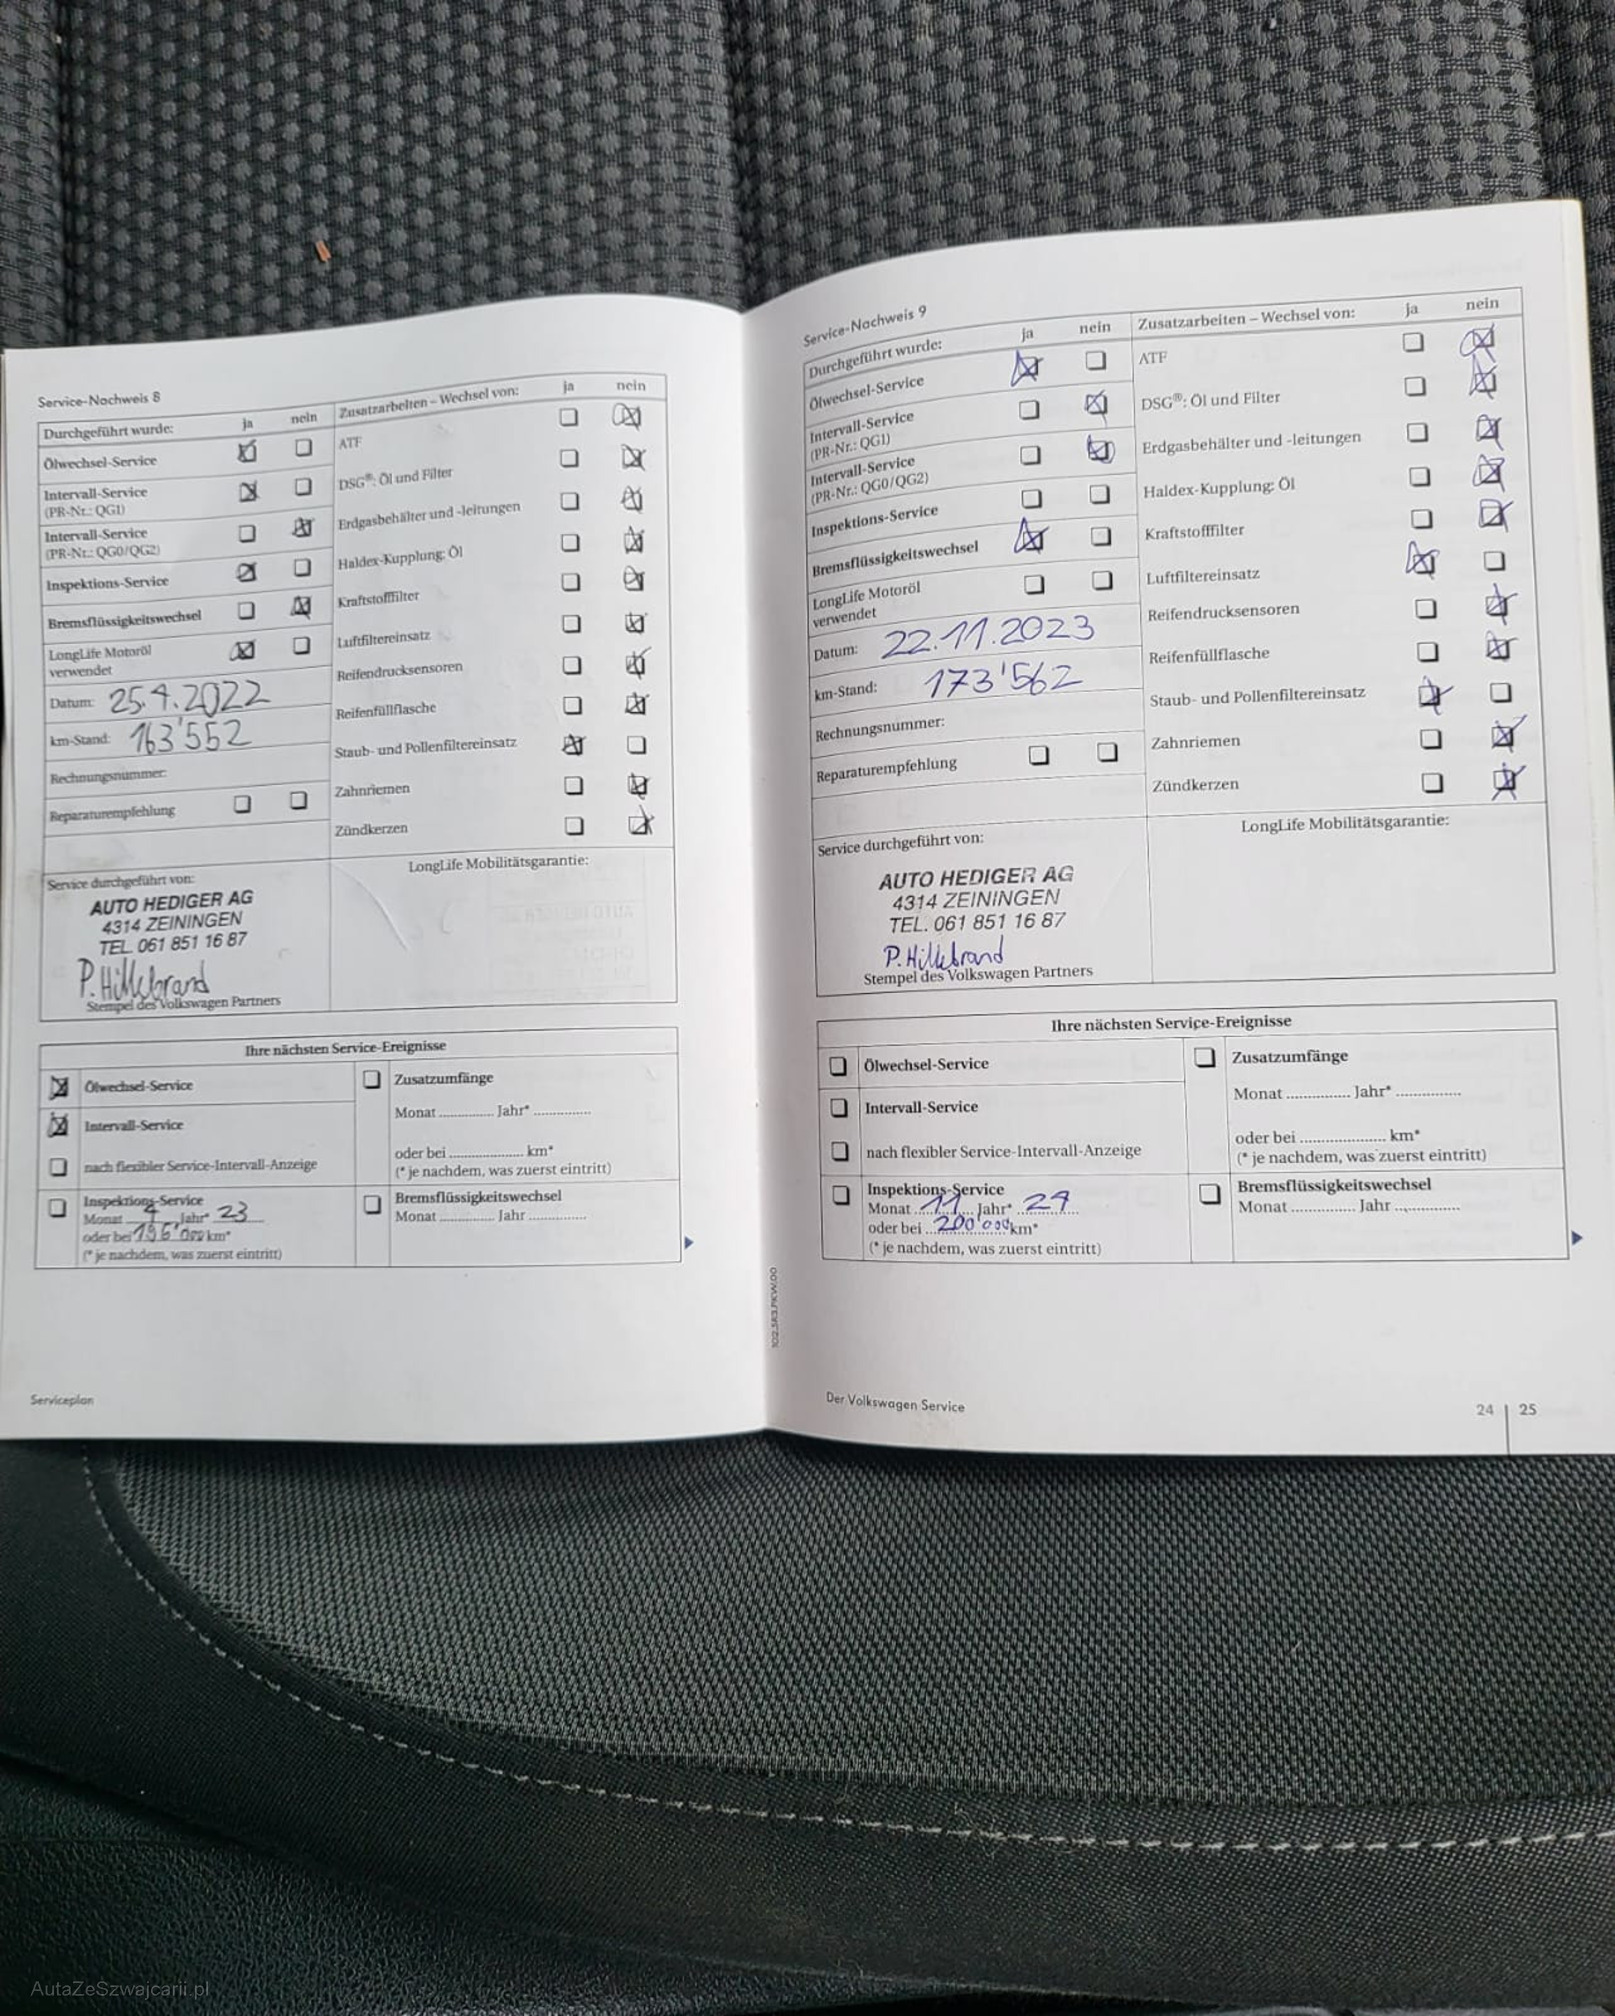 Service-Nachweis 8
Durchgeführt wurde: ja nein
Ölwechsel-Service
Intervall-Service
(PR-Nr.: QG1)
Intervall-Service
(PR-Nr.: QG0/QG2)
Inspektions-Service
Bremsflüssigkeitswechsel
LongLife Motoröl
verwendet
Datum: 25.4.2022
km-Stand: 163'552
Rechnungsnummer:
Reparaturempfehlung
Zusatzarbeiten – Wechsel von: ja nein
ATF
DSG®: Öl und Filter
Erdgasbehälter und -leitungen
Haldex-Kupplung: Öl
Kraftstofffilter
Luftfiltereinsatz
Reifendrucksensoren
Reifenfüllflasche
Staub- und Pollenfiltereinsatz
Zahnriemen
Zündkerzen
Service durchgeführt von:
AUTO HEDIGER AG
4314 ZEININGEN
TEL. 061 851 16 87
P. Hillebrand
Stempel des Volkswagen Partners
LongLife Mobilitätsgarantie:
Ihre nächsten Service-Ereignisse
Ölwechsel-Service
Intervall-Service
nach flexibler Service-Intervall-Anzeige
Inspektions-Service
Monat 4 Jahr* 23
oder bei 196'000 km*
(* je nachdem, was zuerst eintritt)
Zusatzumfänge
Monat .............. Jahr* ...............
oder bei .................... km*
(* je nachdem, was zuerst eintritt)
Bremsflüssigkeitswechsel
Monat .............. Jahr ...............
Serviceplan
Service-Nachweis 9
Durchgeführt wurde: ja nein
Ölwechsel-Service
Intervall-Service
(PR-Nr.: QG1)
Intervall-Service
(PR-Nr.: QG0/QG2)
Inspektions-Service
Bremsflüssigkeitswechsel
LongLife Motoröl
verwendet
Datum: 22.11.2023
km-Stand: 173'562
Rechnungsnummer:
Reparaturempfehlung
Zusatzarbeiten – Wechsel von: ja nein
ATF
DSG®: Öl und Filter
Erdgasbehälter und -leitungen
Haldex-Kupplung: Öl
Kraftstofffilter
Luftfiltereinsatz
Reifendrucksensoren
Reifenfüllflasche
Staub- und Pollenfiltereinsatz
Zahnriemen
Zündkerzen
Service durchgeführt von:
AUTO HEDIGER AG
4314 ZEININGEN
TEL. 061 851 16 87
P. Hillebrand
Stempel des Volkswagen Partners
LongLife Mobilitätsgarantie:
Ihre nächsten Service-Ereignisse
Ölwechsel-Service
Intervall-Service
nach flexibler Service-Intervall-Anzeige
Inspektions-Service
Monat 11 Jahr* 24
oder bei 200'000 km*
(* je nachdem, was zuerst eintritt)
Zusatzumfänge
Monat .............. Jahr* ...............
oder bei .................... km*
(* je nachdem, was zuerst eintritt)
Bremsflüssigkeitswechsel
Monat .............. Jahr ...............
102.5R3.PKW.00
Der Volkswagen Service
24 | 25
AutaZeSzwajcarii.pl